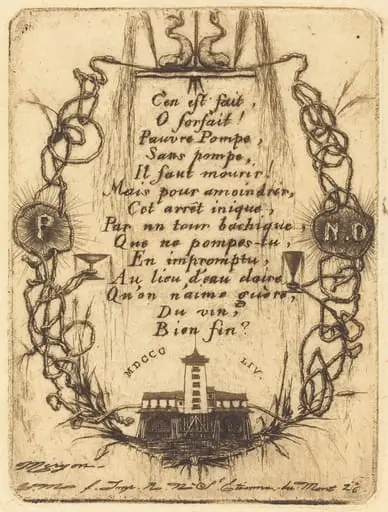 C'en est fait,
O forfait!
Pauvre Pompe,
Sans pompe,
Il faut mourir!
Mais pour amoindrir,
Cet arrêt inique,
Par un tour bachique,
Que ne pompes-tu,
En impromptu,
Au lieu d'eau claire,
Qu'on n'aime guère,
Du vin,
Bien fin?
P.
N.D
MDCCC LIV.
Meryon
St Etienne-du-Mont 26